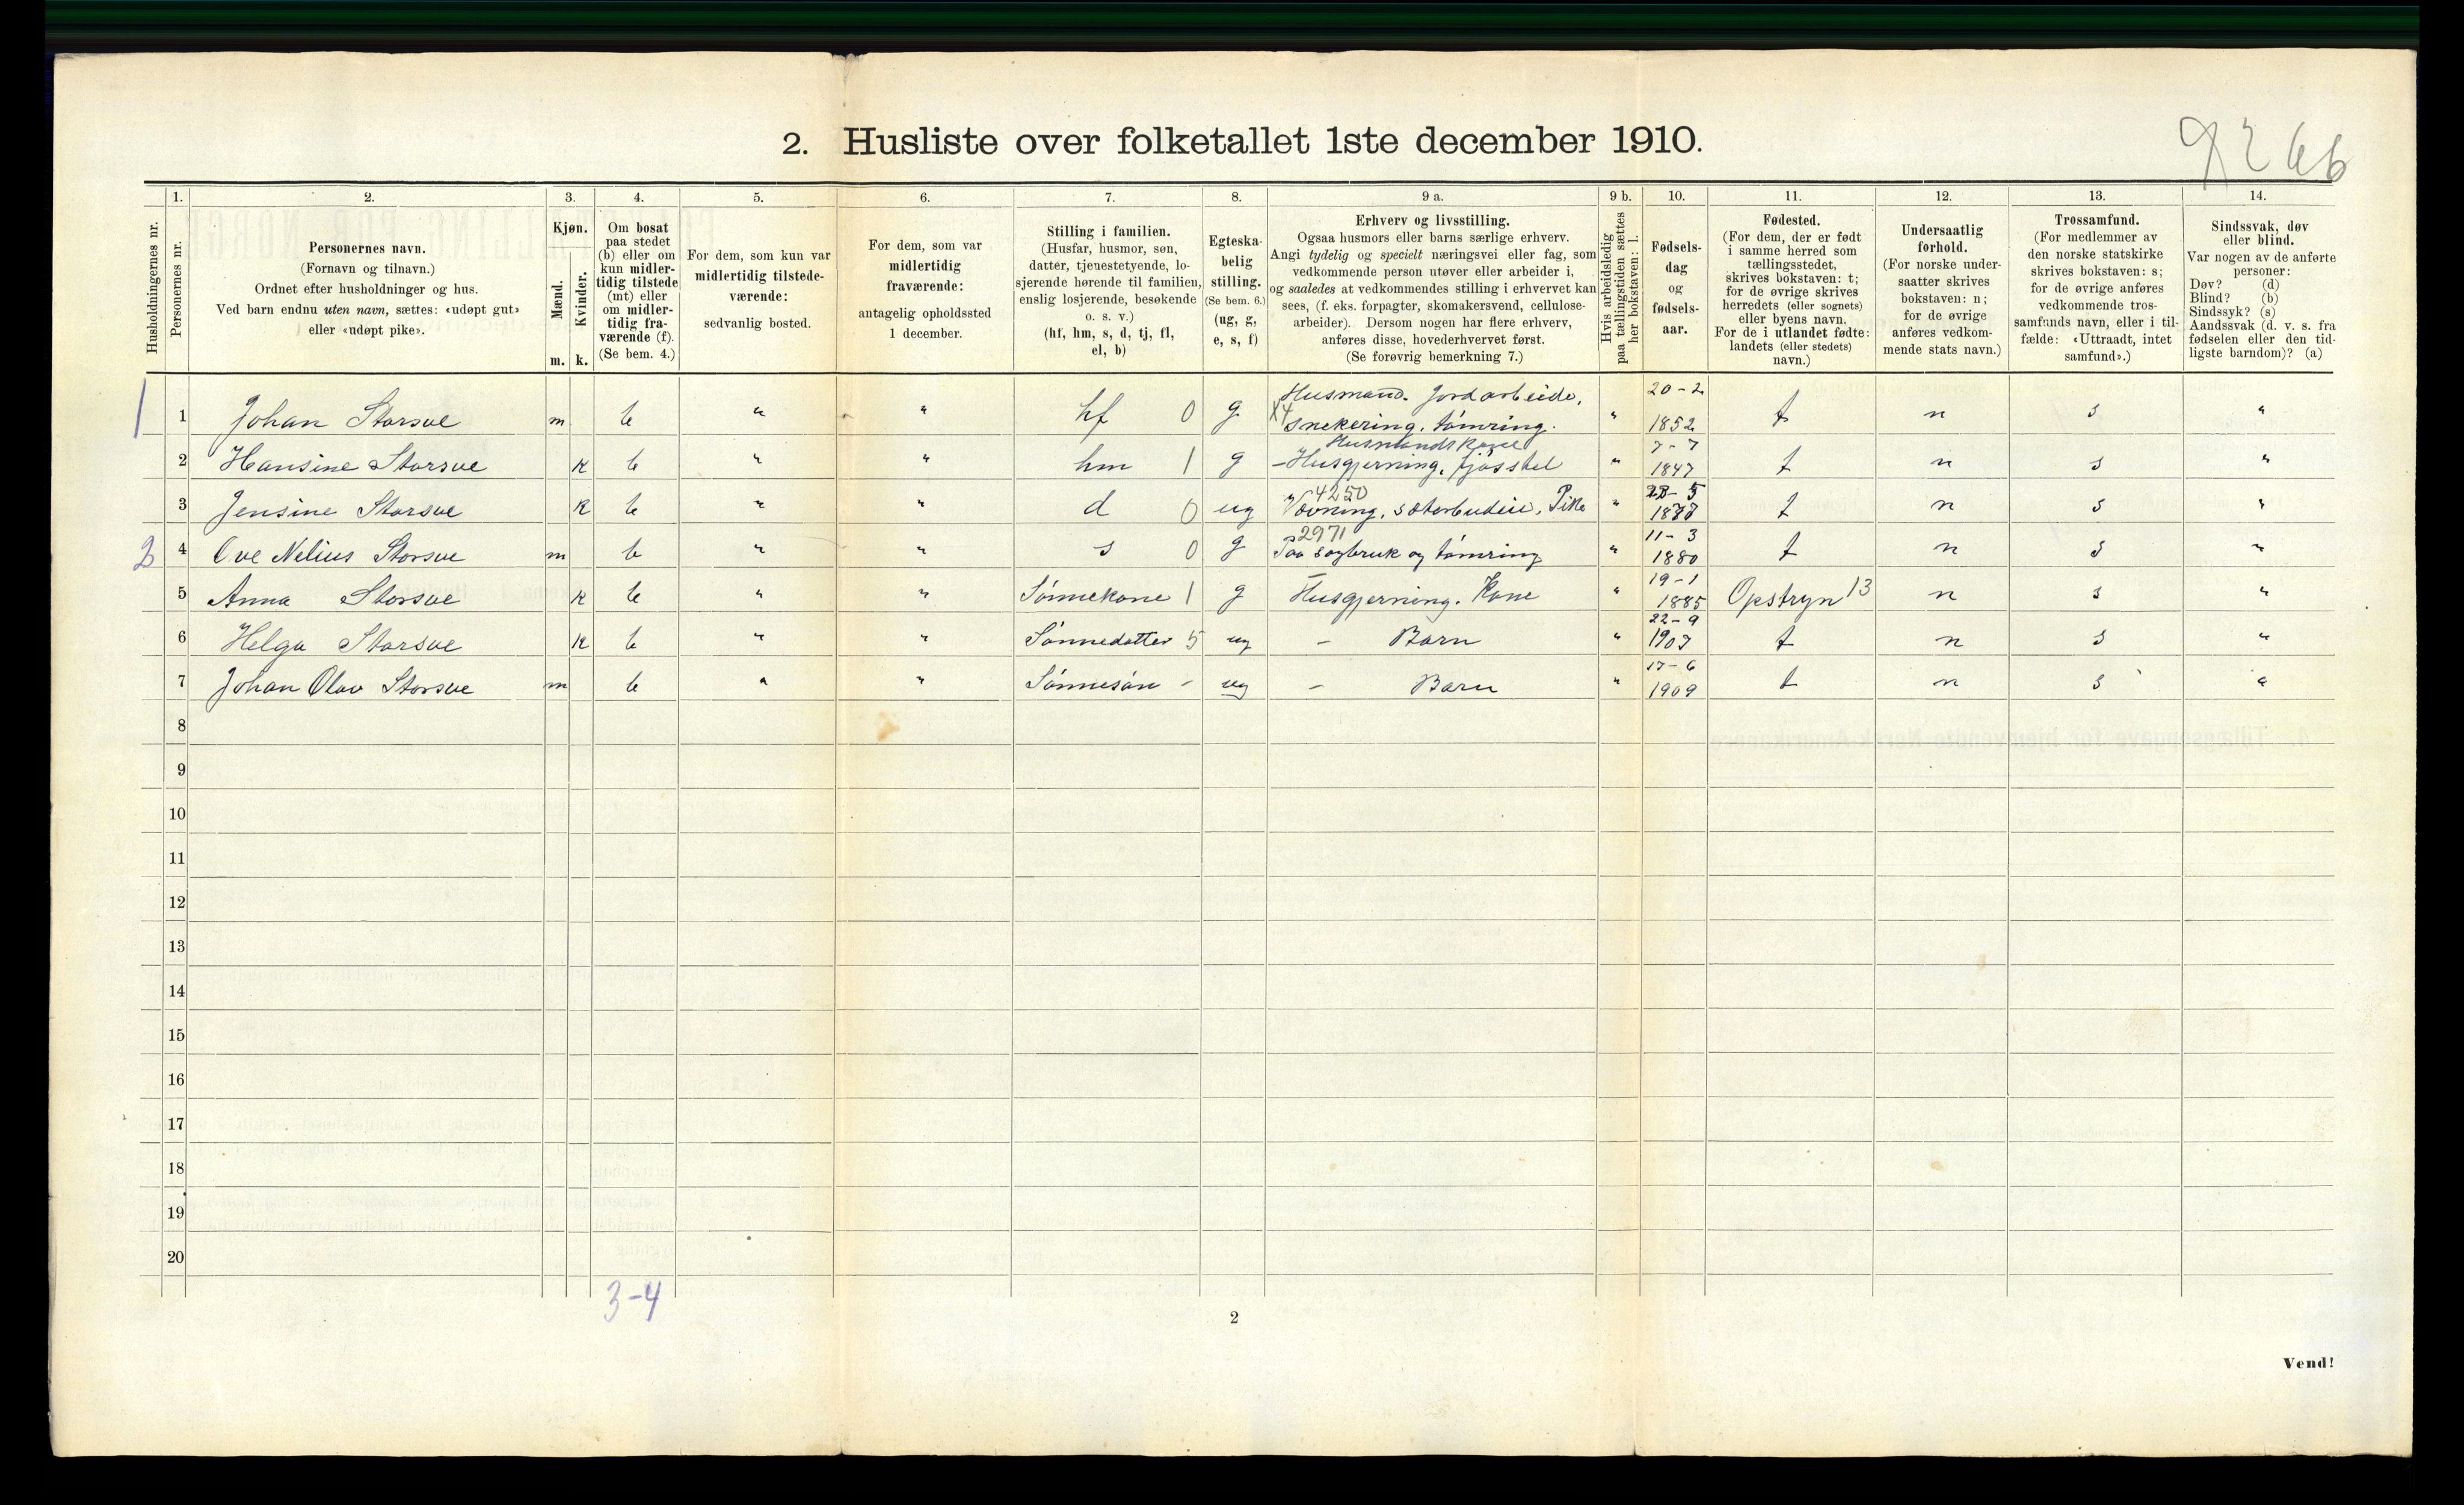 9266
2. Husliste over folketallet 1ste december 1910.
Husholdningernes nr.
1.
Personernes nr.
2.
Personernes navn.
(Fornavn og tilnavn.)
Ordnet efter husholdninger og hus.
Ved barn endnu uten navn, sættes: «udøpt gut»
eller «udøpt pike».
3.
Kjøn.
Mænd.
Kvinder.
m. k.
4.
Om bosat
paa stedet
(b) eller om
kun midler-
tidig tilstede
(mt) eller
om midler-
tidig fra-
værende (f).
(Se bem. 4.)
5.
For dem, som kun var
midlertidig tilstede-
værende:
sedvanlig bosted.
6.
For dem, som var
midlertidig
fraværende:
antagelig opholdssted
1 december.
7.
Stilling i familien.
(Husfar, husmor, søn,
datter, tjenestetyende, lo-
sjerende hørende til familien,
enslig losjerende, besøkende
o. s. v.)
(hf, hm, s, d, tj, fl,
el, b)
8.
Egteska-
belig
stilling.
(Se bem. 6.)
(ug, g,
e, s, f)
9 a.
Erhverv og livsstilling.
Ogsaa husmors eller barns særlige erhverv.
Angi tydelig og specielt næringsvei eller fag, som
vedkommende person utøver eller arbeider i,
og saaledes at vedkommendes stilling i erhvervet kan
sees, (f. eks. forpagter, skomakersvend, cellulose-
arbeider). Dersom nogen har flere erhverv,
anføres disse, hovederhvervet først.
(Se forøvrig bemerkning 7.)
9 b.
Hvis arbeidsledig
paa tællingstiden sættes
her bokstaven: l.
10.
Fødsels-
dag
og
fødsels-
aar.
11.
Fødested.
(For dem, der er født
i samme herred som
tællingsstedet,
skrives bokstaven: t;
for de øvrige skrives
herredets (eller sognets)
eller byens navn.
For de i utlandet fødte:
landets (eller stedets)
navn.)
12.
Undersaatlig
forhold.
(For norske under-
saatter skrives
bokstaven: n;
for de øvrige
anføres vedkom-
mende stats navn.)
13.
Trossamfund.
(For medlemmer av
den norske statskirke
skrives bokstaven: s;
for de øvrige anføres
vedkommende tros-
samfunds navn, eller i til-
fælde: «Uttraadt, intet
samfund».)
14.
Sindssvak, døv
eller blind.
Var nogen av de anførte
personer:
Døv? (d)
Blind? (b)
Sindssyk? (s)
Aandssvak (d. v. s. fra
fødselen eller den tid-
ligste barndom)? (a)
Husmand. Jordarbeide, 20-2
1 1 Johan Storsve m b " " hf 0 g X4 snekering, tømring. " 1852 t n s "
Husmandskone 7-7
2 Hansine Storsve k b " " hm 1 g - Husgjerning, fjøsstel " 1847 t n s "
4250 5
3 Jensine Storsve k b " " d 0 ug Vævning, sæterbudeie, Pike " t n s "
2971 11-3
2 4 Ove Nelius Storsve m b " " s 0 g Paa sagbruk og tømring " 1880 t n s "
19-1
5 Anna Storsve k b " " Sønnekone 1 g Husgjerning. Kone " 1885 Opstryn 13 n s "
22-9
6 Helga Storsve k b " " Sønnedatter 5 ug - Barn " 1907 t n s "
17-6
7 Johan Olav Storsve m b " " Sønnesøn - ug - Barn " 1909 t n s "
8
9
10
11
12
13
14
15
16
17
18
19
20
3-4
2
Vend!